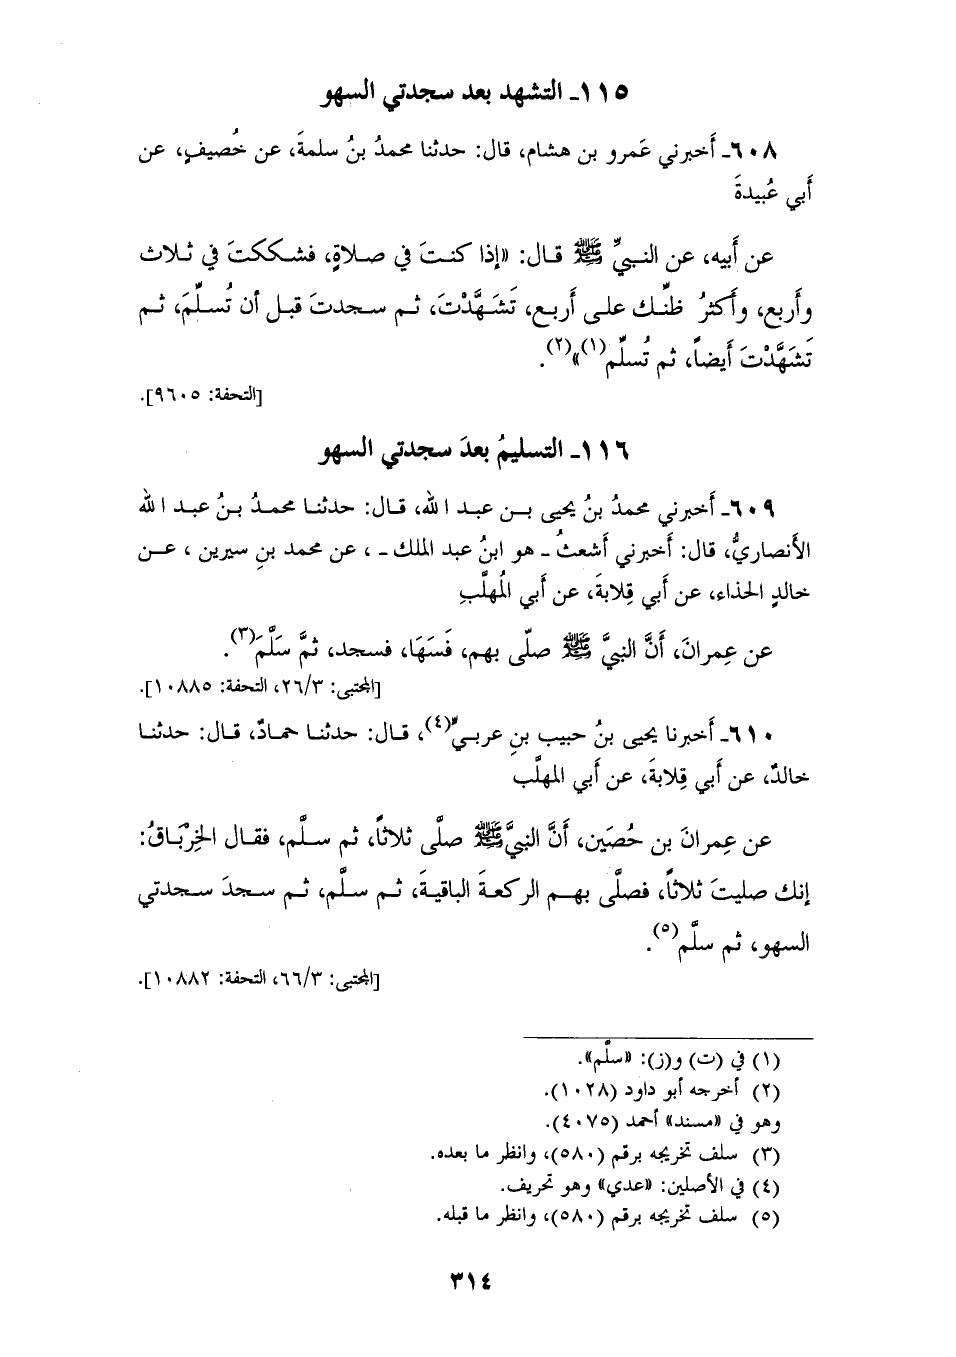 ١١٥ـ التشهد بعد سجدتي السهو
٦٠٨ـ أخبرني عَمرو بن هشام، قال: حدثنا محمدُ بنُ سلمةَ، عن خُصيفٍ، عن
أبي عُبيدةَ
عن أَبيه، عن النبيِّ ﷺ قال: «إذا كنتَ في صلاةٍ، فشككتَ في ثلاث
وأَربع، وأَكثرُ ظنِّك على أَربع، تَشَهَّدْتَ، ثم سجدتَ قبل أن تُسلِّمَ، ثم
تَشَهَّدْتَ أَيضاً، ثم تُسلِّم(١)»(٢).
[التحفة: ٩٦٠٥].
١١٦ـ التسليمُ بعدَ سجدتي السهو
٦٠٩ـ أَخبرني محمدُ بنُ يحيى بن عبد الله، قال: حدثنا محمدُ بنُ عبد الله
الأَنصاريُّ، قال: أَخبرني أَشعثُ ـ هو ابنُ عبد الملك ـ ، عن محمد بنِ سيرين ، عن
خالدٍ الحذاء، عن أَبي قِلابةَ، عن أَبي المُهلَّبِ
عن عِمرانَ، أَنَّ النبيَّ ﷺ صلّى بهم، فَسَهَا، فسجد، ثمَّ سَلَّمَ(٣).
[المجتبى: ٢٦/٣، التحفة: ١٠٨٨٥].
٦١٠ـ أَخبرنا يحيى بنُ حبيب بنِ عربيٍّ(٤)، قال: حدثنا حمادٌ، قال: حدثنا
خالدٌ، عن أَبي قِلابةَ، عن أَبي المهلَّب
عن عِمرانَ بن حُصَين، أَنَّ النبيَّ ﷺ صلَّى ثلاثاً، ثم سلَّم، فقال الخِرْبَاقُ:
إنك صليتَ ثلاثاً، فصلَّى بهم الركعةَ الباقيةَ، ثم سلَّم، ثم سجدَ سجدتي
السهو، ثم سلَّم(٥).
[المجتبى: ٦٦/٣، التحفة: ١٠٨٨٢].
(١) في (ت) و(ز): «سلَّم».
(٢) أخرجه أبو داود (١٠٢٨).
وهو في «مسند» أحمد (٤٠٧٥).
(٣) سلف تخريجه برقم (٥٨٠)، وانظر ما بعده.
(٤) في الأصلين: «عدي» وهو تحريف.
(٥) سلف تخريجه برقم (٥٨٠)، وانظر ما قبله.
٣١٤